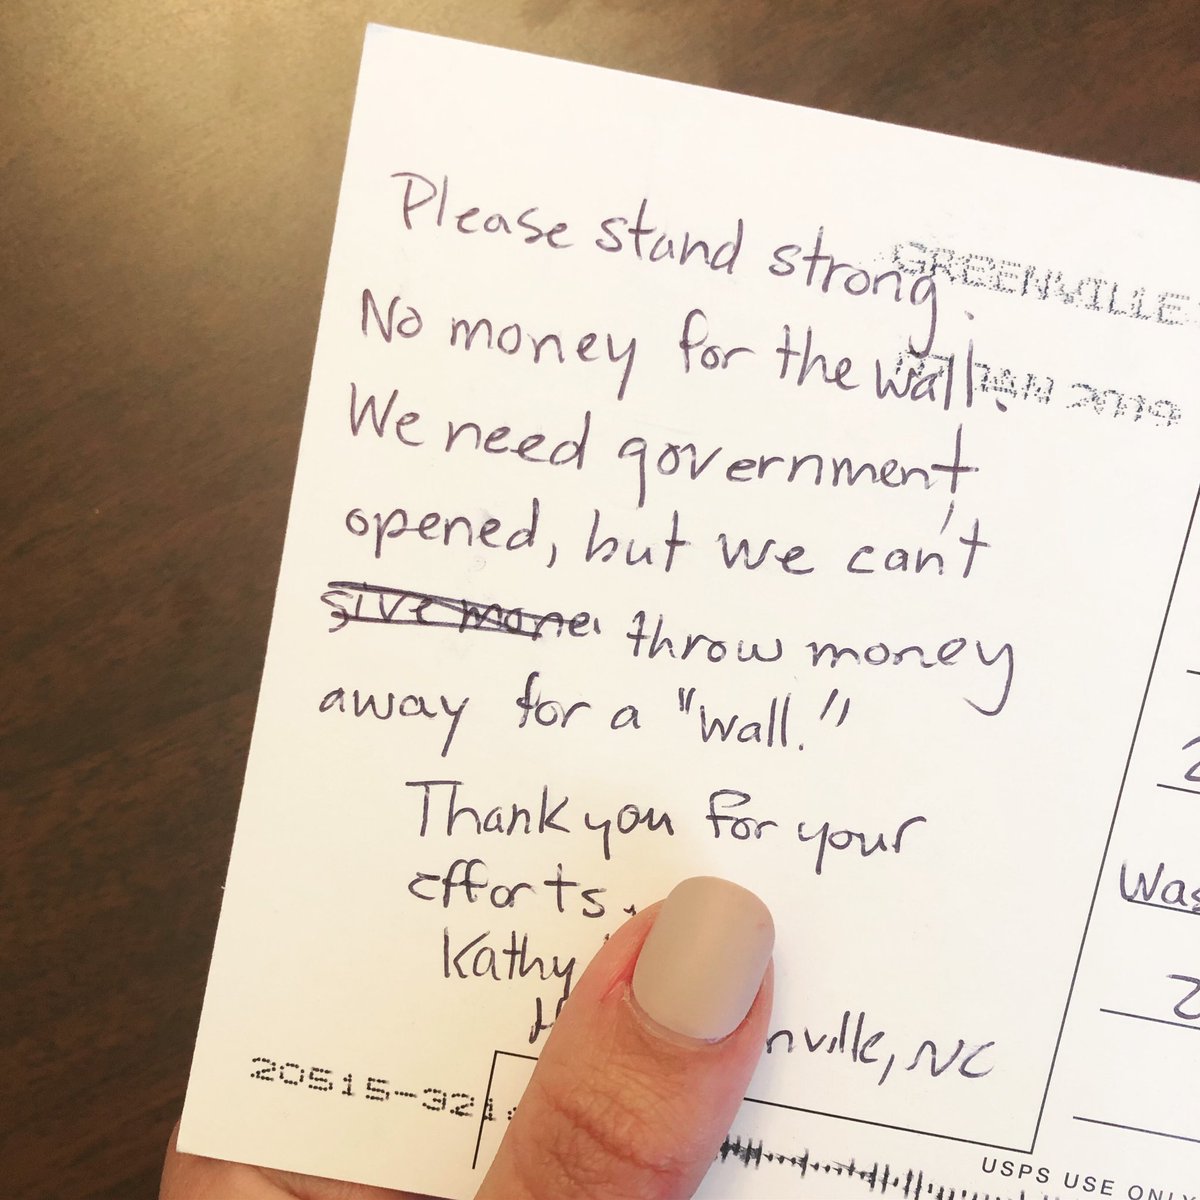 Please stand strong.
GREENVILLE
No money for the wall.
JAN 2019
We need government
opened, but we can't
give mone throw money
away for a "wall."
Thank you for your
efforts.
Kathy
nville, NC
20515-321
Was
USPS USE ONLY